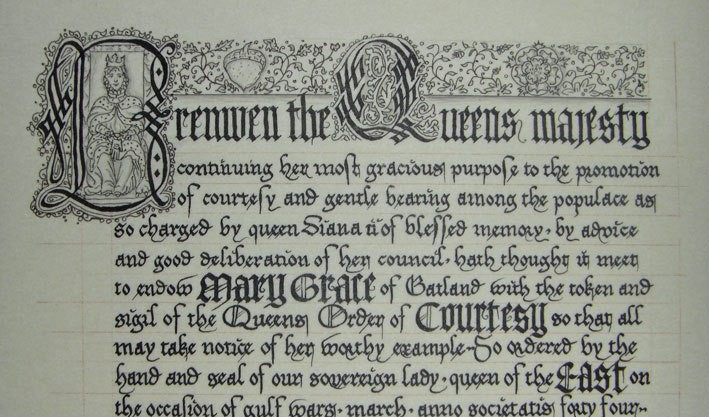 Brenwen the Queens majesty
continuing her most gracious purpose to the promotion
of courtesy and gentle bearing among the populace as
so charged by queen Diana ii of blessed memory, by advice
and good deliberation of her council, hath thought it meet
to endow Mary Grace of Gatland with the token and
sigil of the Queens Order of Courtesy so that all
may take notice of her worthy example. So ordered by the
hand and seal of our sovereign lady, queen of the East on
the occasion of gulf wars, march, anno societatis forty four